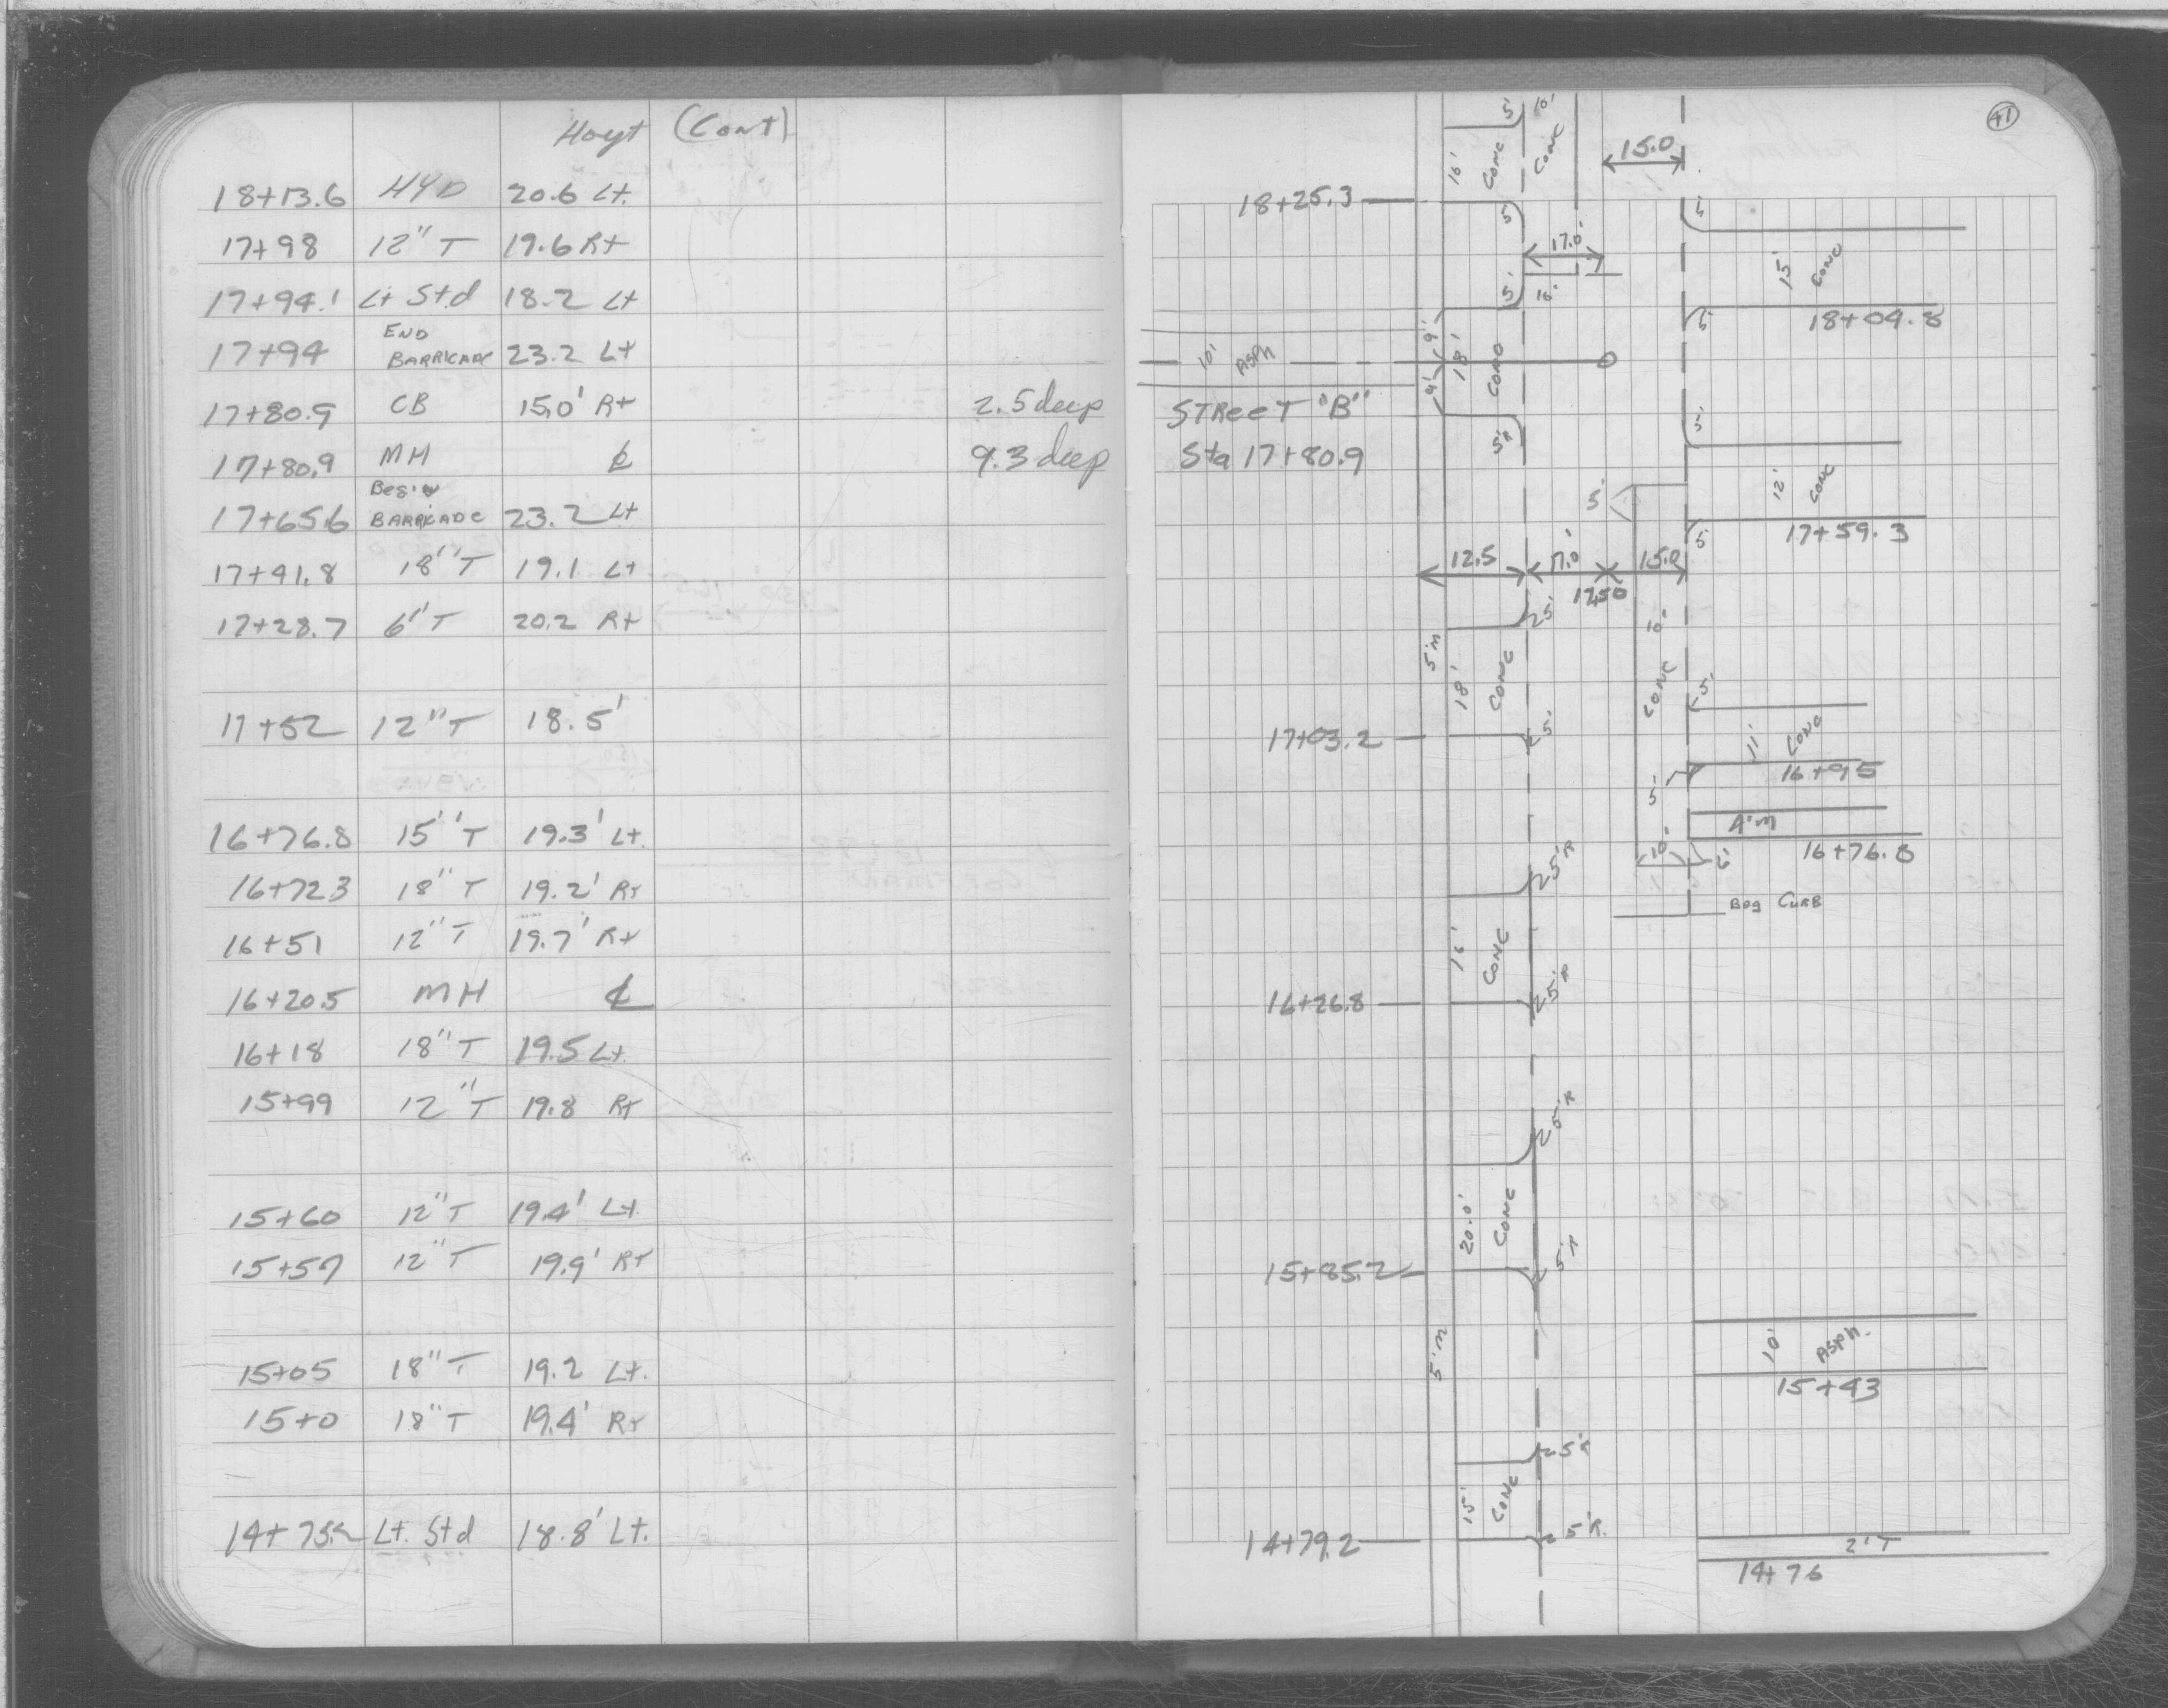 Hoyt (Cont)
18+13.6 HYD 20.6 Lt.
17+98 12" T 19.6 Rt
17+94.1 Lt Std 18.2 Lt
17+94 END BARRICADE 23.2 Lt
17+80.9 CB 15.0' Rt 2.5 deep
17+80.9 MH ℄ 9.3 deep
17+65.6 Begin BARRICADE 23.2 Lt
17+41.8 18" T 19.1 Lt
17+28.7 6" T 20.2 Rt
17+52 12" T 18.5'
16+76.8 15" T 19.3' Lt.
16+72.3 18" T 19.2' Rt
16+51 12" T 19.7' Rt
16+20.5 MH ℄
16+18 18" T 19.5 Lt.
15+99 12" T 19.8 Rt
15+60 12" T 19.4' Lt.
15+57 12" T 19.9' Rt
15+05 18" T 19.2 Lt.
15+0 18" T 19.4' Rt
14+75.2 Lt. Std 18.8' Lt.
41
5' 10'
16' CONC CONC
15.0
18+25.3
5' 5'
17.0'
15' CONC
5' 16'
5' 18+09.8
10' ASPH
9' 9' 18' CONC
STREET "B"
5'R 5'
Sta 17+80.9
12' CONC
5'
17+59.3
5
12.5 17.0' 15.0
17+50
5'
10'
5'm 18' CONC
CONC
5'
17+03.2
5'
11' CONC
16+95
5'
4'm
10' 6' 16+76.8
5'R
Beg CURB
16' CONC
16+26.8
5'R
5'R
20.0' CONC
15+85.2
5'R
5'm
10' ASPH.
15+43
5'R
15' CONC
14+79.2
5'R.
2'T
14+76